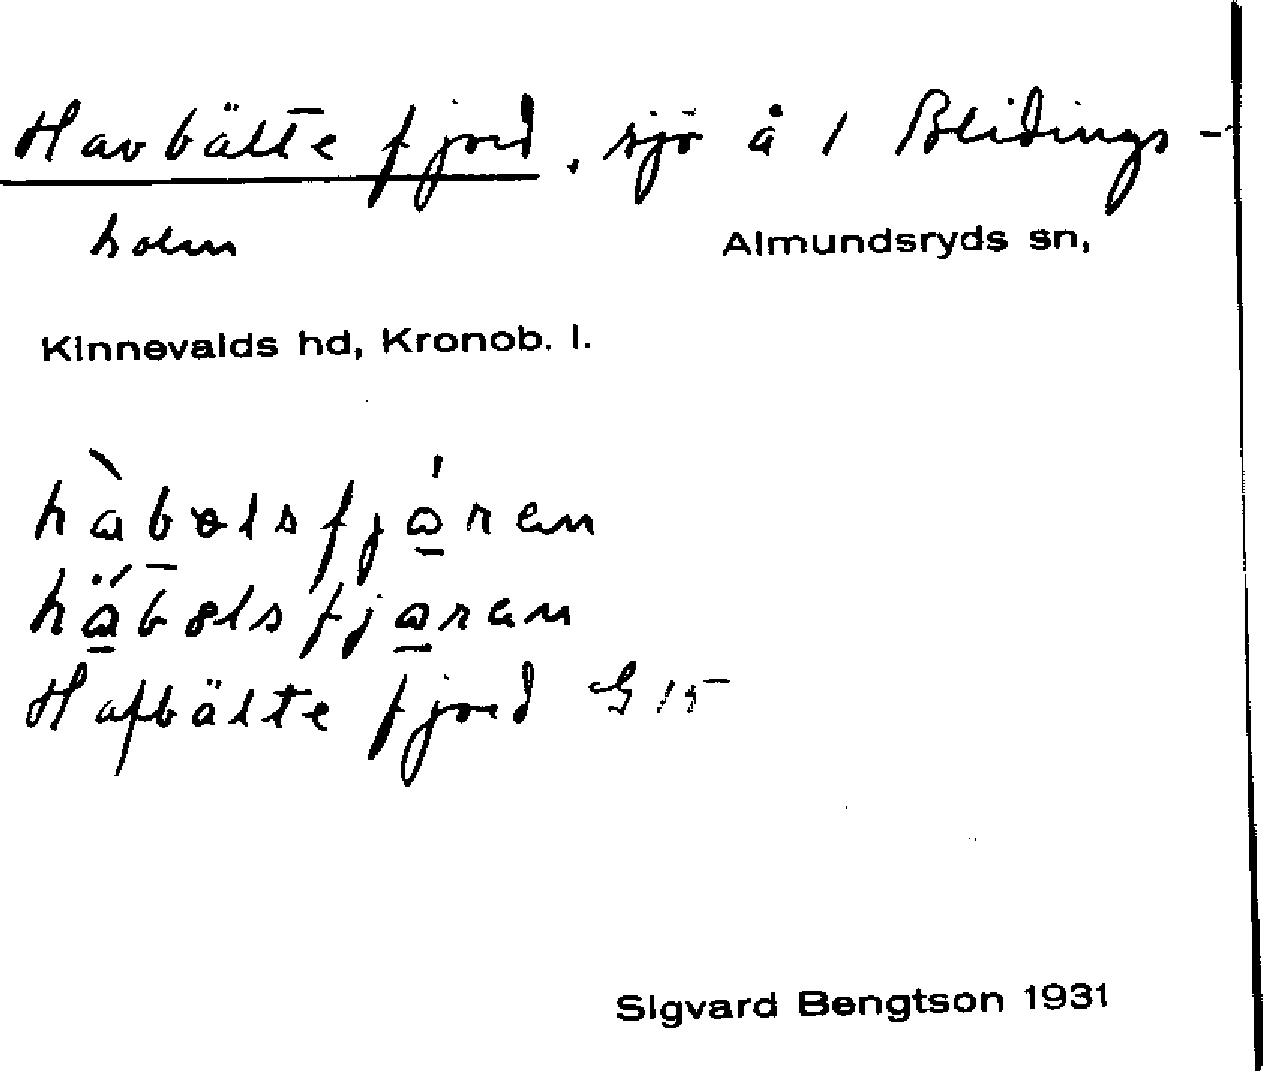 Havbälte fjord, sjö å 1 Blidings-
holm Almundsryds sn,
Kinnevalds hd, Kronob. l.
hàbɵlsfjáren
hä́bɵlsfjaren
Hafbälte fjord G 15
Sigvard Bengtson 1931